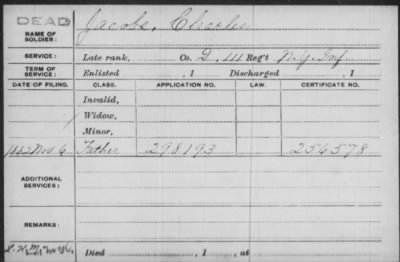 DEAD
NAME OF SOLDIER: Jacobs, Charles
SERVICE: Late rank, Co. D, 111 Reg't N.Y. Inf
TERM OF SERVICE: Enlisted , 1 Discharged , 1
DATE OF FILING. CLASS. APPLICATION NO. LAW. CERTIFICATE NO.
Invalid,
Widow,
Minor,
1882 Nov. 6 Father 298193 256578
ADDITIONAL SERVICES:
REMARKS:
Died , 1 , at